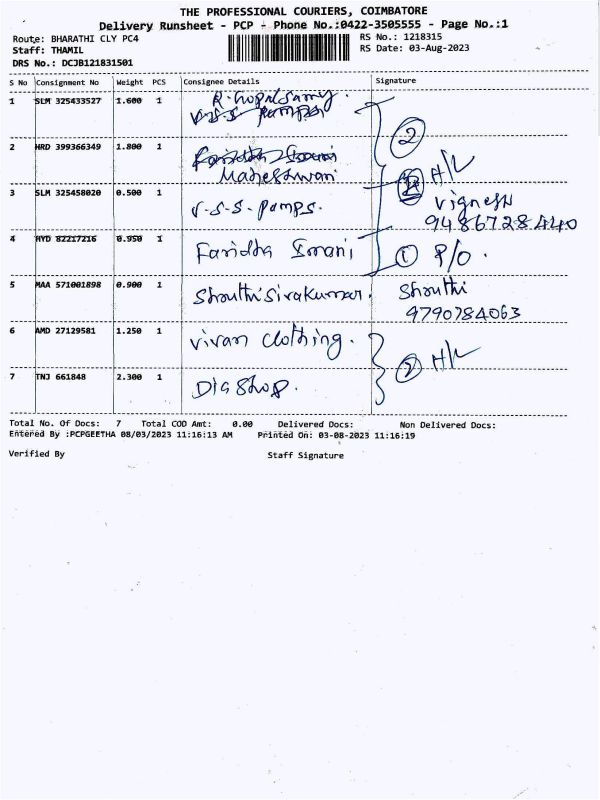 THE PROFESSIONAL COURIERS, COIMBATORE
Delivery Runsheet - PCP - Phone No.:0422-3505555 - Page No.:1
Route: BHARATHI CLY PC4
RS No.: 1218315
Staff: THAMIL
RS Date: 03-Aug-2023
DRS No.: DCJB121831501
S No Consignment No Weight PCS Consignee Details Signature
1 SLM 325433527 1.600 1 R. Gopalsamy.
V.S.S Pumps
2
2 HRD 399366349 1.800 1
Maheshwari
H/L
3 SLM 325458020 0.500 1 V.S.S. Pumps. Vignesh
9486728440
4 HYD 82217216 0.950 1 Faridha Imani, 1 P/O.
5 MAA 571001898 0.900 1 Shruthi Sivakumar. Shruthi
9790784063
6 AMD 27129581 1.250 1 Vivan Clothing.
2 H/L
7 TNJ 661848 2.300 1 Dia Shop.
Total No. Of Docs: 7 Total COD Amt: 0.00 Delivered Docs: Non Delivered Docs:
Entered By :PCPGEETHA 08/03/2023 11:16:13 AM Printed On: 03-08-2023 11:16:19
Verified By Staff Signature